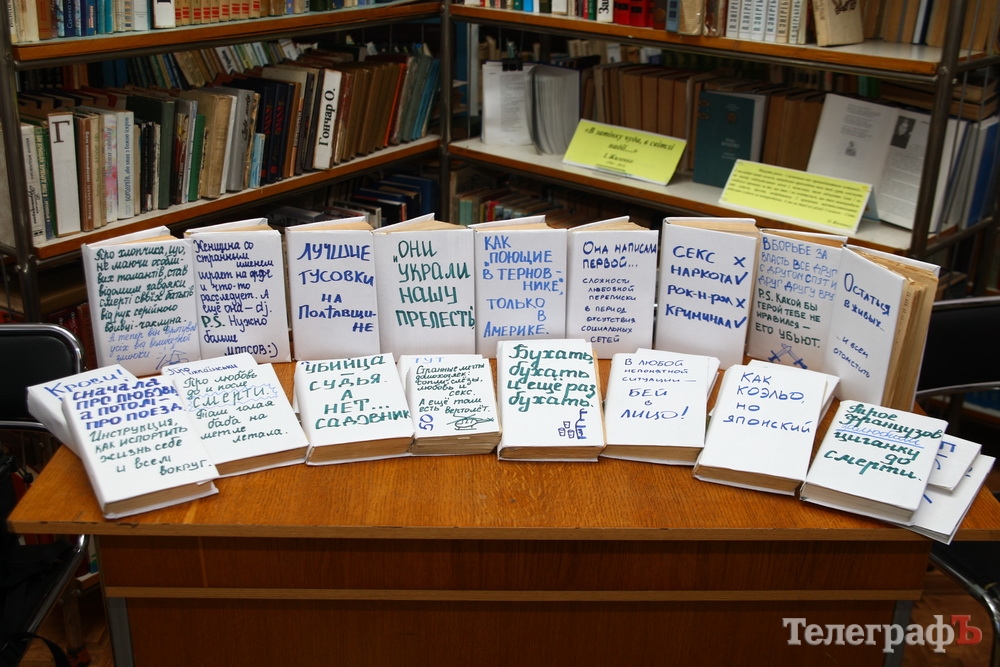 Гончар О.
Г
«В затінку чуда, в світлі
надії...»
Про хлопчика, що,
не маючи особли-
вих талантів, став
відомим завдяки
смерті своїх батьків
від рук серійного
вбивці-чаклуна.
Женщина со
странным именем
играет на арфе
и что-то
расследует. А
ещё она - cij.
P.S. Нужно
больше
мопсов:)
ЛУЧШИЕ
ТУСОВКИ
НА
ПОЛТАВЩИ-
НЕ
„ОНИ
УКРАЛИ
НАШУ
ПРЕЛЕСТЬ
КАК
„ПОЮЩИЕ
В ТЕРНОВ-
НИКЕ,"
ТОЛЬКО
В
АМЕРИКЕ.
ОНА НАПИСАЛА
ПЕРВОЙ...
СЛОЖНОСТИ
ЛЮБОВНОЙ
ПЕРЕПИСКИ
В ПЕРИОД
ОТСУТСТВИЯ
СОЦИАЛЬНЫХ
СЕТЕЙ
СЕКС X
НАРКОТА V
РОК-Н-РОЛ X
КРИМИНАЛ V
В БОРЬБЕ ЗА
ВЛАСТЬ ВСЕ ДРУГ
С ДРУГОМ СПЯТ И
ДРУГ ДРУГУ ВРУТ
P.S. КАКОЙ БЫ
ГЕРОЙ ТЕБЕ НЕ
НРАВИЛСЯ -
ЕГО УБЬЮТ.
ОСТАТЬСЯ
В ЖИВЫХ.
Крови!
СНАЧАЛА
ПРО ЛЮБОВЬ,
А ПОТОМ
ПРО ПОЕЗД.
Инструкция,
как испортить
жизнь себе
и всем
вокруг.
Про любовь
и после
смерти.
Там голая
баба на
метле
летала.
УБИЙЦА
СУДЬЯ.
А
НЕТ...
САДОВНИК
ТУТ
50
любовь и
секс.
А ещё там
есть вертолёт.
Бухать
бухать
и ещё раз
бухать.
В ЛЮБОЙ
НЕПОНЯТНОЙ
СИТУАЦИИ -
БЕЙ
В
ЛИЦО!
КАК
КОЭЛЬО,
НО
ЯПОНСКИЙ
Трое
французов
цыганку
до
смерти.
ТелеграфЪ